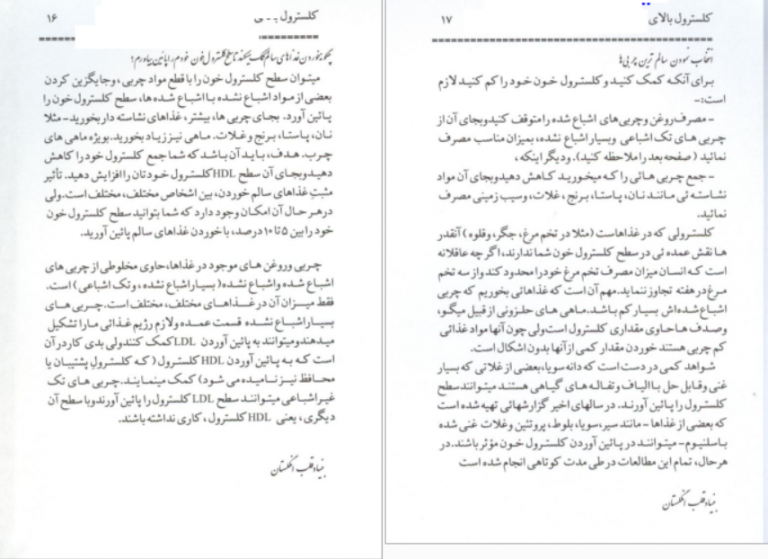 ۱۶
کلسترول
چگونه خوردن غذاهای سالم کمک میکند تا سطح کلسترول خون خودم را پائین بیاورم؟
میتوان سطح کلسترول خون را با قطع مواد چربی، وجایگزین کردن
بعضی از مواد اشباع نشده با اشباع شده ها، سطح کلسترول خون را
پائین آورد. بجای چربی ها، بیشتر، غذاهای نشاسته دار بخورید- مثلا
نان، پاستا، برنج و غلات. ماهی نیز زیاد بخورید. بویژه ماهی های
چرب. هدف، باید آن باشد که شما جمع کلسترول خود را کاهش
دهید و بجای آن سطح HDL کلسترول خودتان را افزایش دهید. تأثیر
مثبت غذاهای سالم خوردن، بین اشخاص مختلف، مختلف است. ولی
در هر حال آن امکان وجود دارد که شما بتوانید سطح کلسترول خون
خود را بین ۵ تا ۱۰ درصد، با خوردن غذاهای سالم پائین آورید.
چربی و روغن های موجود در غذاها، حاوی مخلوطی از چربی های
اشباع شده واشباع نشده( بسیار اشباع نشده، و تک اشباعی) است.
فقط میزان آن در غذاهای مختلف، مختلف است. چربی های
بسیار اشباع نشده قسمت عمده ولازم رژیم غذائی ما را تشکیل
میدهند و میتوانند به پائین آوردن LDL کمک کنند ولی بدی کار در آن
است که به پائین آوردن HDL کلسترول ( که کلسترول پشتیبان یا
محافظ نیز نامیده می شود) کمک مینمایند. چربی های تک
غیر اشباعی میتوانند سطح LDL کلسترول را پائین آورند و با سطح آن
دیگری، یعنی HDL کلسترول، کاری نداشته باشند.
بنیاد قلب انگلستان
۱۷
کلسترول بالای
انتخاب نمودن سالم ترین چربی ها
برای آنکه کمک کنید و کلسترول خون خود را کم کنید لازم
است:-
- مصرف روغن و چربی های اشباع شده را متوقف کنید و بجای آن از
چربی های تک اشباعی و بسیار اشباع نشده، بمیزان مناسب مصرف
نمائید ( صفحه بعد را ملاحظه کنید). و دیگر اینکه،
- جمع چربی هائی را که میخورید کاهش دهید و بجای آن مواد
نشاسته ئی مانند نان، پاستا، برنج، غلات، وسیب زمینی مصرف
نمائید.
کلسترولی که در غذاهاست (مثلا در تخم مرغ، جگر، و قلوه) آنقدر
ها نقش عمده ئی در سطح کلسترول خون شما ندارند، اگر چه عاقلانه
است که انسان میزان مصرف تخم مرغ خود را محدود کند و از سه تخم
مرغ در هفته تجاوز ننماید. مهم آن است که غذاهائی بخوریم که چربی
اشباع شده اش بسیار کم باشد. ماهی های حلزونی از قبیل میگو،
وصدف ها حاوی مقداری کلسترول است ولی چون آنها مواد غذائی
کم چربی هستند خوردن مقدار کمی از آنها بدون اشکال است.
شواهد کمی در دست است که دانه سویا، بعضی از غلاتی که بسیار
غنی وقابل حل با الیاف و تفاله های گیاهی هستند میتوانند سطح
کلسترول را پائین آورند. در سالهای اخیر گزارشهائی تهیه شده است
که بعضی از غذاها - مانند سیر، سویا، بلوط، پروتئین و غلات غنی شده
با سلنیوم- میتوانند در پائین آوردن کلسترول خون مؤثر باشند. در
هر حال، تمام این مطالعات در طی مدت کوتاهی انجام شده است
بنیاد قلب انگلستان